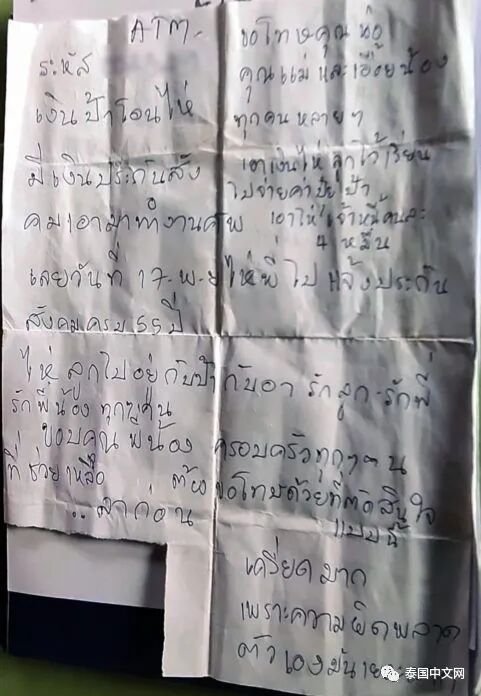 ATM-
รหัส
เงินป้าโอนไห่
มีเงินประกันสัง
คมเอามาทำงานศพ
เลยวันที่ 17-พ-ย ไห่พี่ไปแจ้งประกัน
สังคมครบ 55 ปี
ขอโทษคุณพ่อ
คุณแม่ และเอื้อยน้อง
ทุกคน หลายๆ
เอาเงินไห่ ลูกไว้เรียน
ไปจ่ายค่าปุ๋ยป้า
เอาไห้ เจ้าหนี้คนละ
4 หมื่น
ไห่ ลูกไปอยู่กับป้ากับอา รักลูก-รักพี่
รักพี่น้อง ทุกๆคน
ขอบคุณ พี่น้อง ครอบครัวทุกๆคน
ที่ช่วยเหลือ ต้องขอโทษด้วยที่ตัดสินใจ
แบบนี้
..ลาก่อน
เครียดมาก
เพราะความผิดพลาด
ตัวเองมัน
泰国中文网